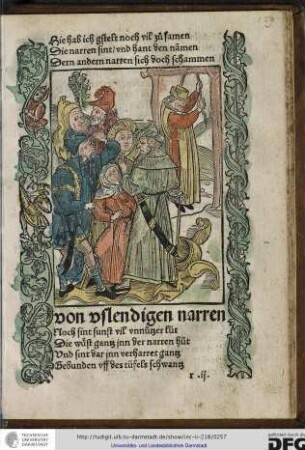 Hie hab ich gstelt noch vil zů samen
Die narren sint / vnd hant den námen
Dern andern narren sich doch schammen
von vslendigen narren
Noch sint sunst vil vnnützer lüt
Die wüst gantz jnn der narren hüt
Vnd sint dar jnn verharret gantz
Gebunden vff des tüfels schwantz
r .ij.
TECHNISCHE UNIVERSITÄT DARMSTADT
http://tudigit.ulb.tu-darmstadt.de/show/inc-ii-218/0257
Universitäts- und Landesbibliothek Darmstadt
gefördert durch die
DFG